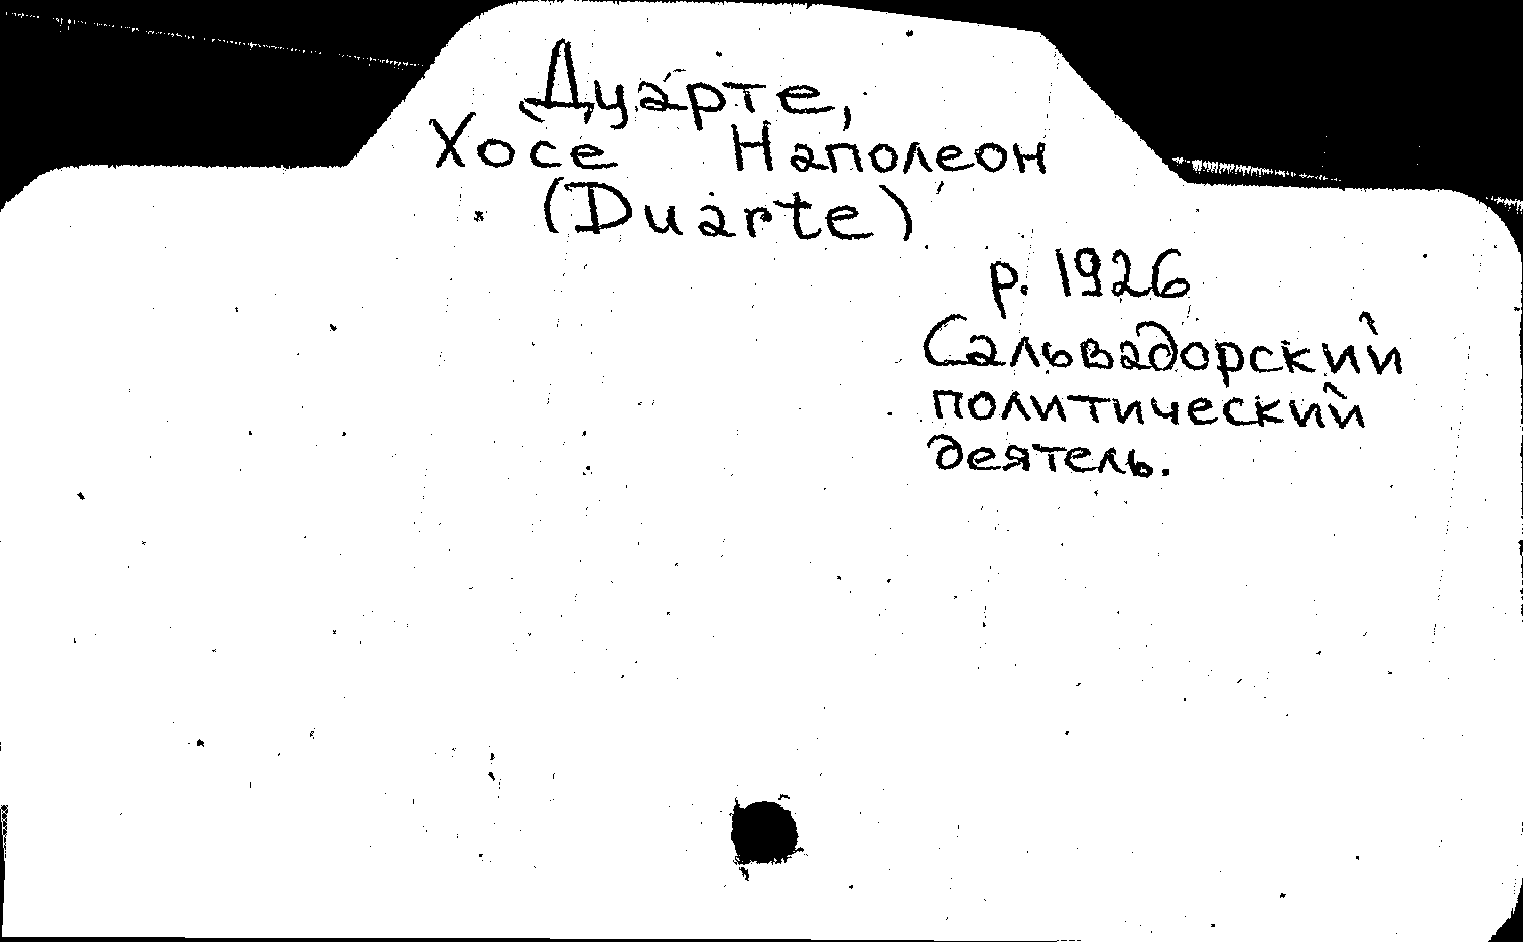 Дуарте,
Хосе Наполеон
(Duarte)
р. 1926
Сальвадорский
политический
деятель.